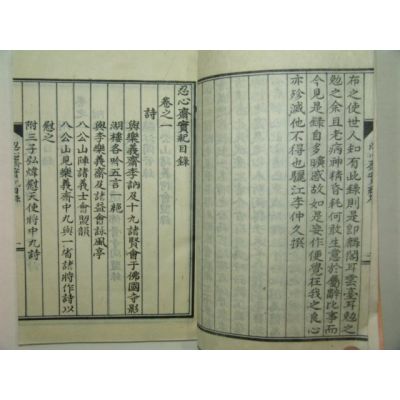 布之使世人知有此錄則是即麟閣耳雲臺耳勉之
勉之余且老病神精昏耗何敢生意於屬辭比事而
今見是錄自多曠感故如是妄作便覺狂我之良心
亦殄滅他不得也驪江李仲久撰
忍心齋實紀目錄
卷之一
詩
與樂義齋李訥及十九諸賢會于佛國寺影
湖樓各吟五言一絶
與李樂義齋及諸益會詠風亭
八公山陣諸義士會盟韻
八公山見樂義齋申九與一省諸將作詩以
慰之
附三子弘煒慰天使將申九詩